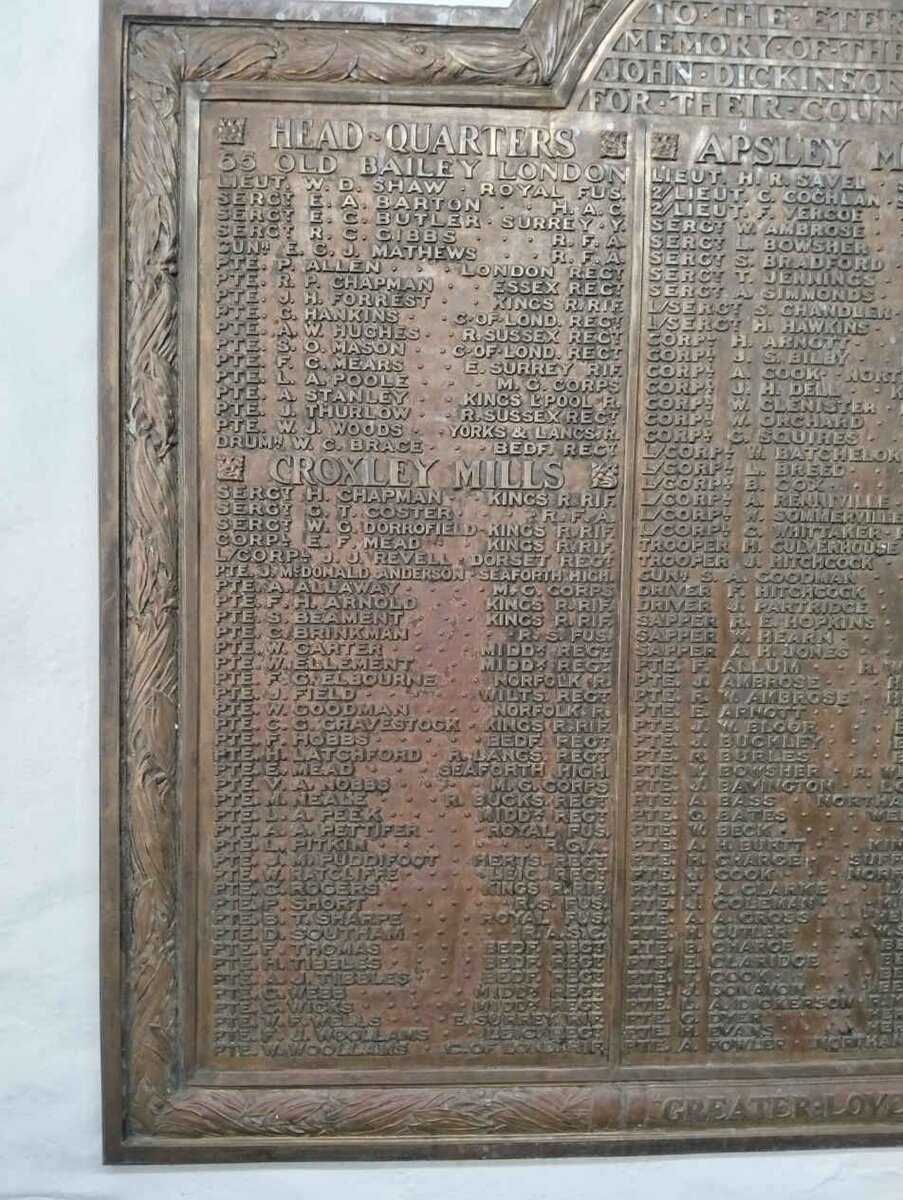 TO · THE · ETER
MEMORY · OF · THE
JOHN · DICKINSON
FOR · THEIR · COUN
HEAD-QUARTERS
65 OLD BAILEY LONDON
LIEUT. W. D. SHAW · ROYAL FUS.
SERGT E. A. BARTON · · H. A. C.
SERGT E. C. BUTLER · SURREY · Y.
SERGT R. G. GIBBS · · R. F. A.
GUNR E. C. J. MATHEWS · · R. F. A.
PTE. P. ALLEN · · LONDON REGT
PTE. R. P. CHAPMAN · ESSEX REGT
PTE. J. H. FORREST · KINGS R. RIF.
PTE. G. HANKINS · C · OF · LOND. REGT
PTE. A. W. HUGHES · R. SUSSEX REGT
PTE. S. O. MASON · C · OF · LOND. REGT
PTE. F. G. MEARS · E. SURREY RIF
PTE. L. A. POOLE · · M. G. CORPS
PTE. A. STANLEY · KINGS L'POOL R.
PTE. J. THURLOW · R. SUSSEX REGT
PTE. W. J. WOODS · YORKS & LANCS. R.
DRUMR W. C. BRACE · BEDF. REGT
CROXLEY MILLS
SERGT H. CHAPMAN · KINGS R. RIF.
SERGT G. T. COSTER · · R. F. A.
SERGT W. G. DORROFIELD · KINGS R. RIF.
CORPL E. F. MEAD · KINGS R. RIF.
L/CORPL J. J. REVELL · DORSET REGT
PTE. J. McDONALD ANDERSON · SEAFORTH HIGH.
PTE. A. ALLAWAY · · M. G. CORPS
PTE. F. H. ARNOLD · KINGS R. RIF.
PTE. S. BEAMENT · KINGS R. RIF.
PTE. C. BRINKMAN · · R. S. FUS.
PTE. W. CARTER · · MIDDX REGT
PTE. W. ELLEMENT · MIDDX REGT
PTE. F. G. ELBOURNE · NORFOLK R.
PTE. J. FIELD · · WILTS. REGT
PTE. W. GOODMAN · NORFOLK R.
PTE. C. G. GRAVESTOCK · KINGS R. RIF.
PTE. F. HOBBS · · BEDF. REGT
PTE. H. LATCHFORD · R. LANCS. REGT
PTE. E. MEAD · SEAFORTH HIGH.
PTE. V. A. NOBBS · · M. G. CORPS
PTE. M. NEALE · · R. BUCKS. REGT
PTE. L. A. PEEK · · MIDDX REGT
PTE. A. A. PETTIFER · ROYAL FUS.
PTE. L. PITKIN · · R. G. A.
PTE. J. M. PUDDIFOOT · HERTS. REGT
PTE. W. RATCLIFFE · LEIC. REGT
PTE. C. ROGERS · KINGS R. RIF.
PTE. P. SHORT · · R. S. FUS.
PTE. B. T. SHARPE · ROYAL FUS.
PTE. D. SOUTHAM
PTE. F. THOMAS · · BEDF. REGT
PTE. H. TIBBLES · · BEDF. REGT
PTE. A. J. TIBBLES · BEDF. REGT
PTE. C. WEBB · · MIDDX REGT
PTE. C. WICKS · · MIDDX REGT
PTE. V. F. WELLS · E. SURREY
PTE. F. J. WOOLLAMS
PTE. W. WOOLLAMS · C. OF LOND.
APSLEY M
LIEUT. H. R. SAVEL
2/LIEUT. C. COCHLAN ·
2/LIEUT. F. VERCOE
SERGT W. AMBROSE
SERGT L. BOWSHER
SERGT S. BRADFORD
SERGT T. JENNINGS
SERGT A. SIMMONDS
L/SERGT S. CHANDLER ·
L/SERGT H. HAWKINS ·
CORPL H. ARNOTT
CORPL J. S. BILBY
CORPL A. COOK · NORT
CORPL J. H. DELL
CORPL W. GLENISTER
CORPL W. ORCHARD
CORPL G. SQUIRES
L/CORPL W. BATCHELOR
L/CORPL L. BREED
L/CORPL B. COX
L/CORPL A. REMNVILLE
L/CORPL W. SOMMERVILLE
L/CORPL G. WHITTAKER ·
TROOPER H. CULVERHOUSE
TROOPER J. HITCHCOCK
GUNR S. A. GOODMAN
DRIVER F. HITCHCOCK
DRIVER J. PARTRIDGE
SAPPER R. E. HOPKINS
SAPPER W. HEARN
SAPPER A. H. JONES
PTE. F. ALLUM · R. W
PTE. J. AMBROSE
PTE. W. AMBROSE
PTE. E. ARNOTT
PTE. J. W. BLOUR
PTE. J. BUCKLEY
PTE. R. BURLES
PTE. W. BOWSHER · R. W
PTE. J. BAVINGTON
PTE. A. BASS · NORTHA
PTE. G. BATES · WE
PTE. W. BECK
PTE. A. H. BURTT · KIN
PTE. H. CHARGE · SUFF
PTE. J. COOK · NORF
PTE. F. A. CLARKE
PTE. J. COLEMAN
PTE. A. A. CROSS
PTE. H. CUTLER · R. W
PTE. B. CHARGE · BE
PTE. E. CLARIDGE · BE
PTE. L. COCK · BE
PTE. J. DONAVON · BE
PTE. L. A. DICKERSON
PTE. G. EMERY
PTE. H. EVANS
PTE. A. FOWLER · NORTHAN
GREATER · LOVE